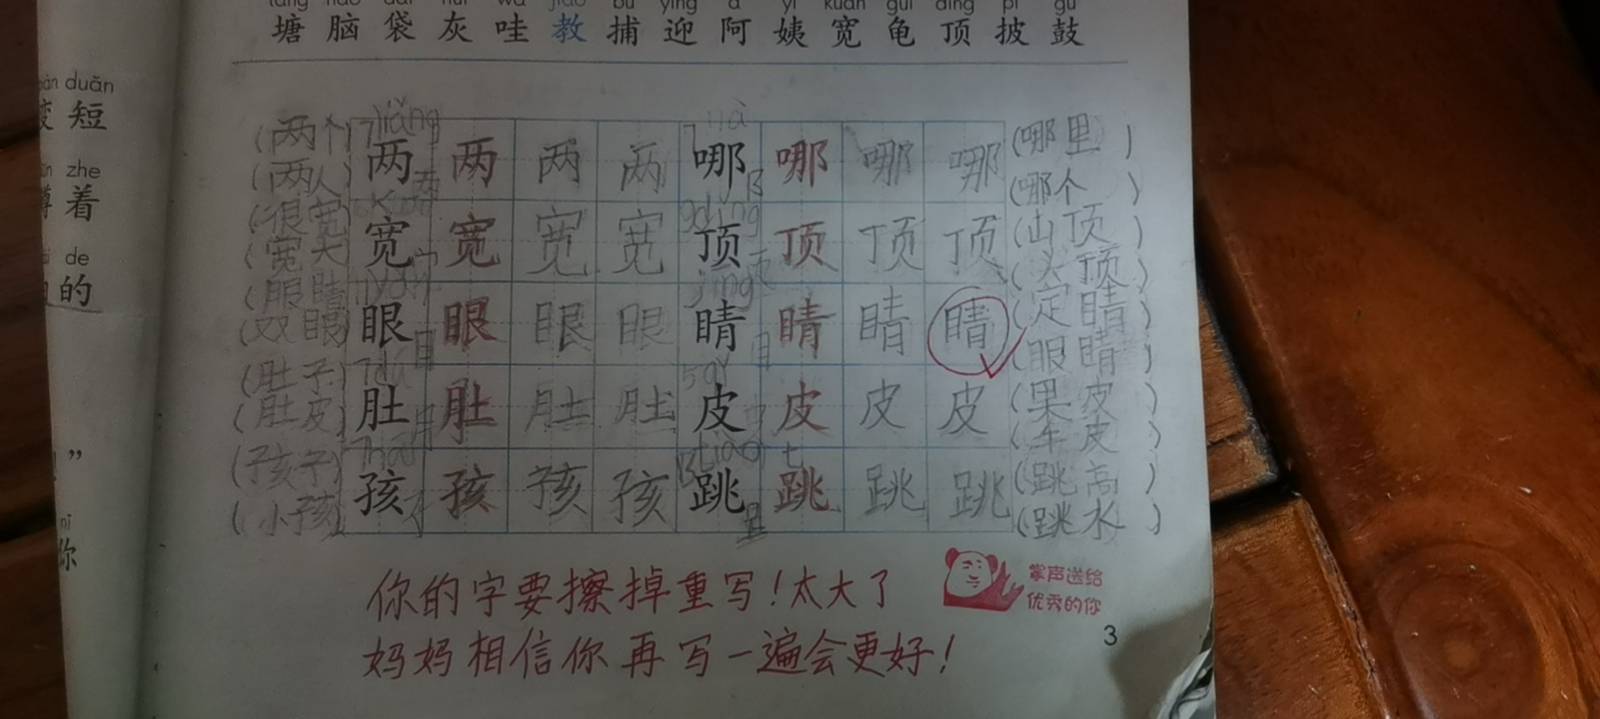 塘 脑 袋 灰 哇 教 捕 迎 阿 姨 宽 龟 顶 披 鼓
duǎn
短
zhe
着
de
的
”
你
(两个) liǎng 两 两 两 两 nà 哪 哪 哪 哪 (哪里)
(两人) (哪个)
(很宽) 宽 宽 宽 宽 dǐng 顶 顶 顶 顶 (山顶)
(宽大) (头顶)
(眼睛) yǎn 眼 眼 眼 眼 jīng 睛 睛 睛 睛 (定睛)
(双眼) 目 目 (眼睛)
(肚子) 肚 肚 肚 肚 皮 皮 皮 皮 (果皮)
(肚皮) 月 (车皮)
(孩子) 孩 孩 孩 孩 跳 跳 跳 跳 (跳高)
(小孩) 子 (跳水)
你的字要擦掉重写!太大了
妈妈相信你再写一遍会更好!
掌声送给
优秀的你
3